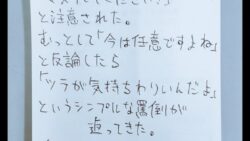 と注意された。
むっとして「今は任意ですよね」
と反論したら
「ツラが気持ちわりいんだよ」
というシンプルな罵倒が
返ってきた。